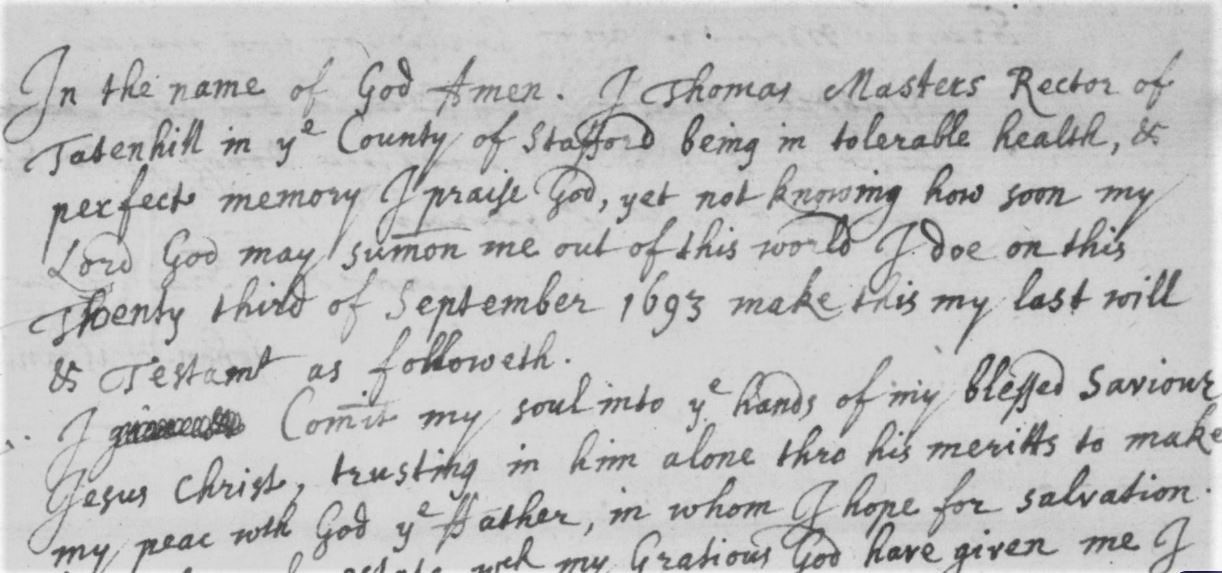 In the name of God Amen. I Thomas Masters Rector of
Tatenhill in yᵉ County of Stafford being in tolerable health, &
perfect memory I praise God, yet not knowing how soon my
Lord God may sum̄on me out of this world I doe on this
Twenty third of September 1693 make this my last will
& Testamᵗ as followeth.
I Com̄it my soul into yᵉ hands of my blessed Saviour
Jesus Christ, trusting in him alone thro his meritts to make
my peac wth God yᵉ ffather, in whom I hope for salvation.
estate wch my Gratious God have given me I